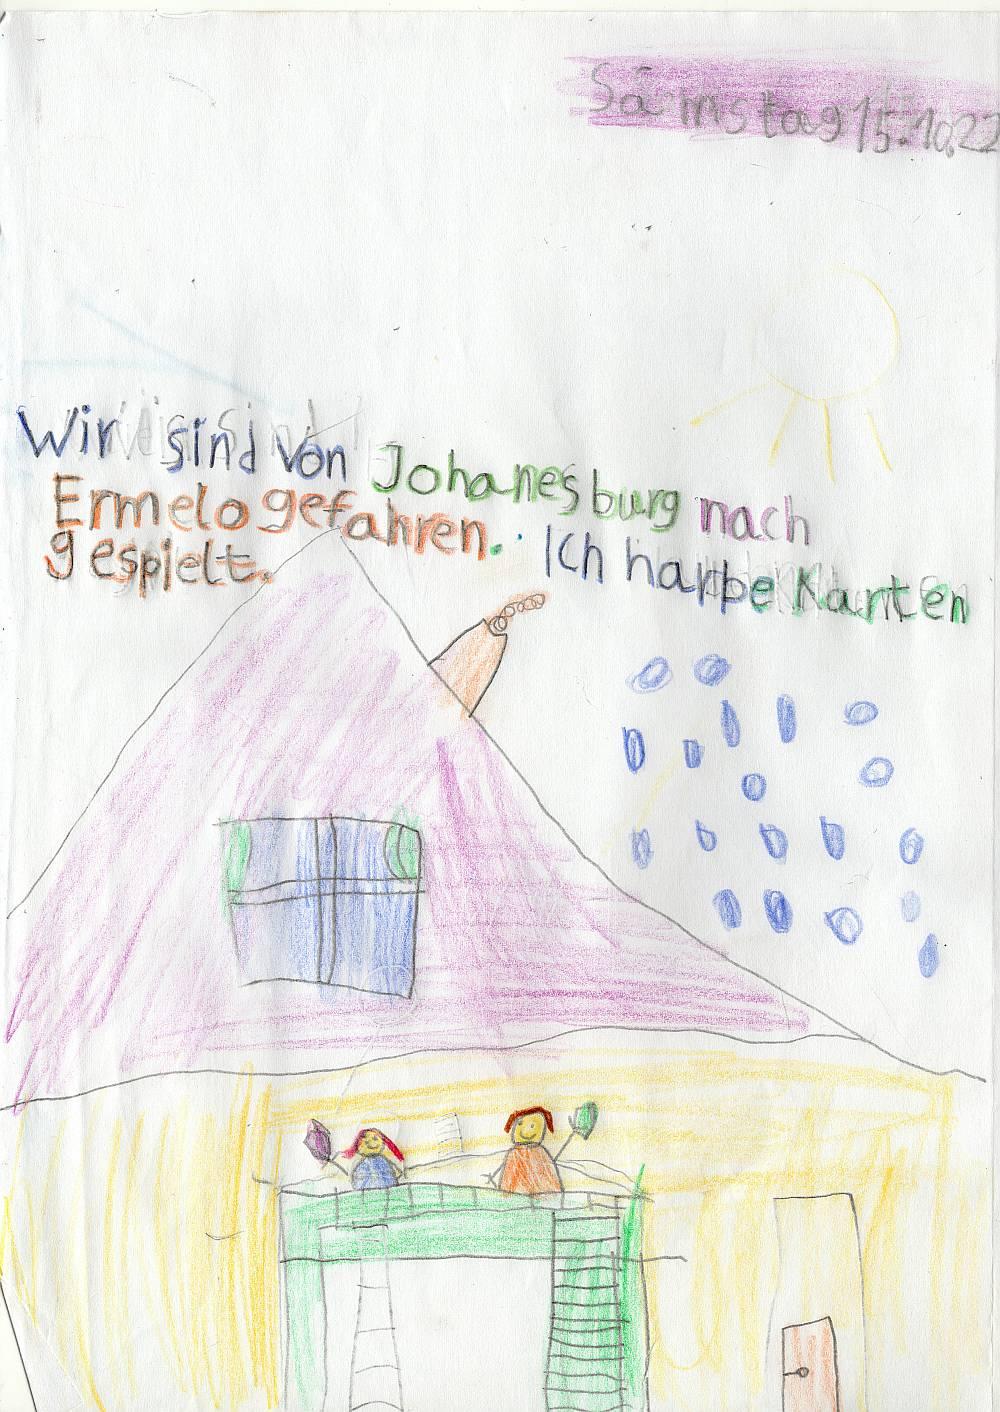 Samstag 15.10.22
Wir sind von Johanesburg nach
Ermelo gefahren. Ich harbe Karten
gespielt.